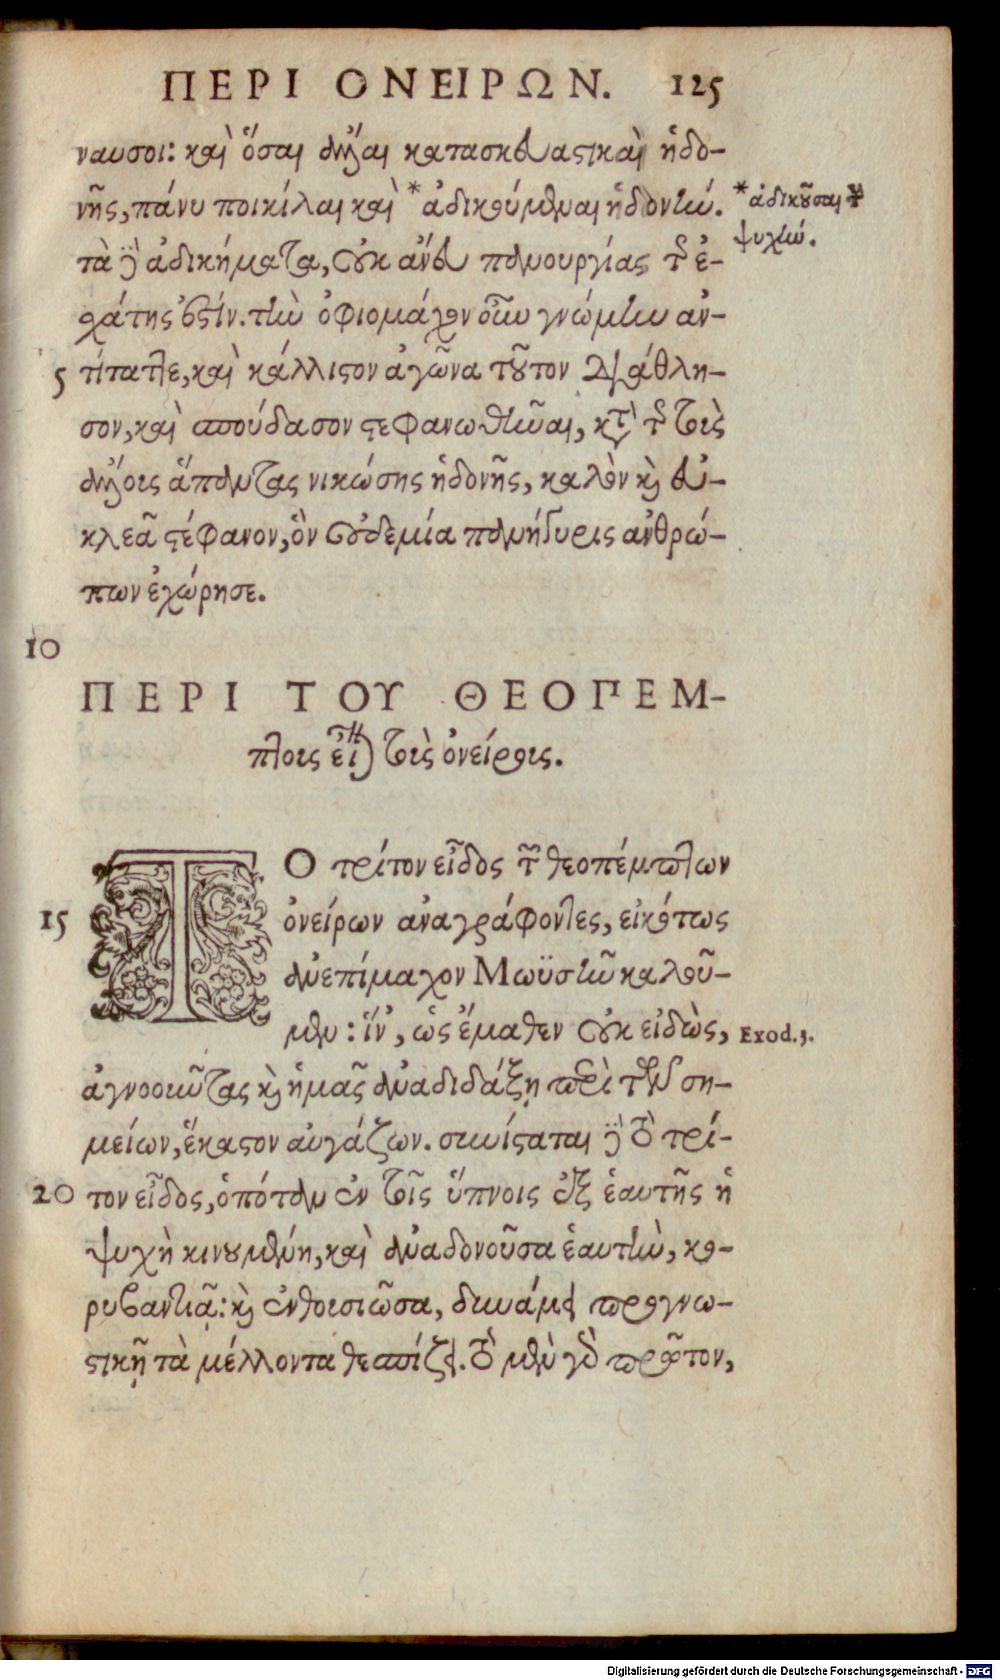 ΠΕΡΙ ΟΝΕΙΡΩΝ. 125
ναυσοι: καὶ ὅσαι ἄλλαι κατασκευαστικαὶ ἡδο-
νῆς, πάνυ ποικίλαι καὶ *ἀδικούμεναι ἡδονήν.
*ἀδικοῦσαι τὴν
ψυχήν.
τὰ δὲ ἀδικήματα, οὐκ ἄνευ πανουργίας τῆς ἐ-
χάτης ἐστίν. τὴν ὀφιομάχον οὖν γνώμην ἀν-
5 τίταττε, καὶ κάλλιστον ἀγῶνα τοῦτον διάθλη-
σον, καὶ σπούδασον στεφανωθῆναι, κατὰ τῆς τοὺς
ἄλλους ἅπαντας νικώσης ἡδονῆς, καλὸν καὶ εὐ-
κλεᾶ στέφανον, ὃν οὐδεμία πανήγυρις ἀνθρώ-
πων ἐχώρησε.
10
ΠΕΡΙ ΤΟΥ ΘΕΟΠΕΜ-
πτους εἶναι τοὺς ὀνείρους.
ΤΟ τρίτον εἶδος τῶν θεοπέμπτων
15 ὀνείρων ἀναγράφοντες, εἰκότως
ἂν ἐπίμαχον Μωϋσῆν καλοῦ-
μεν: ἵν', ὡς ἔμαθεν οὐκ εἰδὼς,
Exod. 3.
ἀγνοοῦντας καὶ ἡμᾶς ἀναδιδάξῃ περὶ τῶν ση-
μείων, ἕκαστον αὐγάζων. συνίσταται δὲ τὸ τρί-
20 τον εἶδος, ὁπόταν ἐν τοῖς ὕπνοις ἐξ ἑαυτῆς ἡ
ψυχὴ κινουμένη, καὶ ἀναδονοῦσα ἑαυτὴν, κο-
ρυβαντιᾷ: καὶ ἐνθουσιῶσα, δυνάμει προγνω-
στικῇ τὰ μέλλοντα θεσπίζει. τὸ μὲν γὰρ πρῶτον,
Digitalisierung gefördert durch die Deutsche Forschungsgemeinschaft - DFG